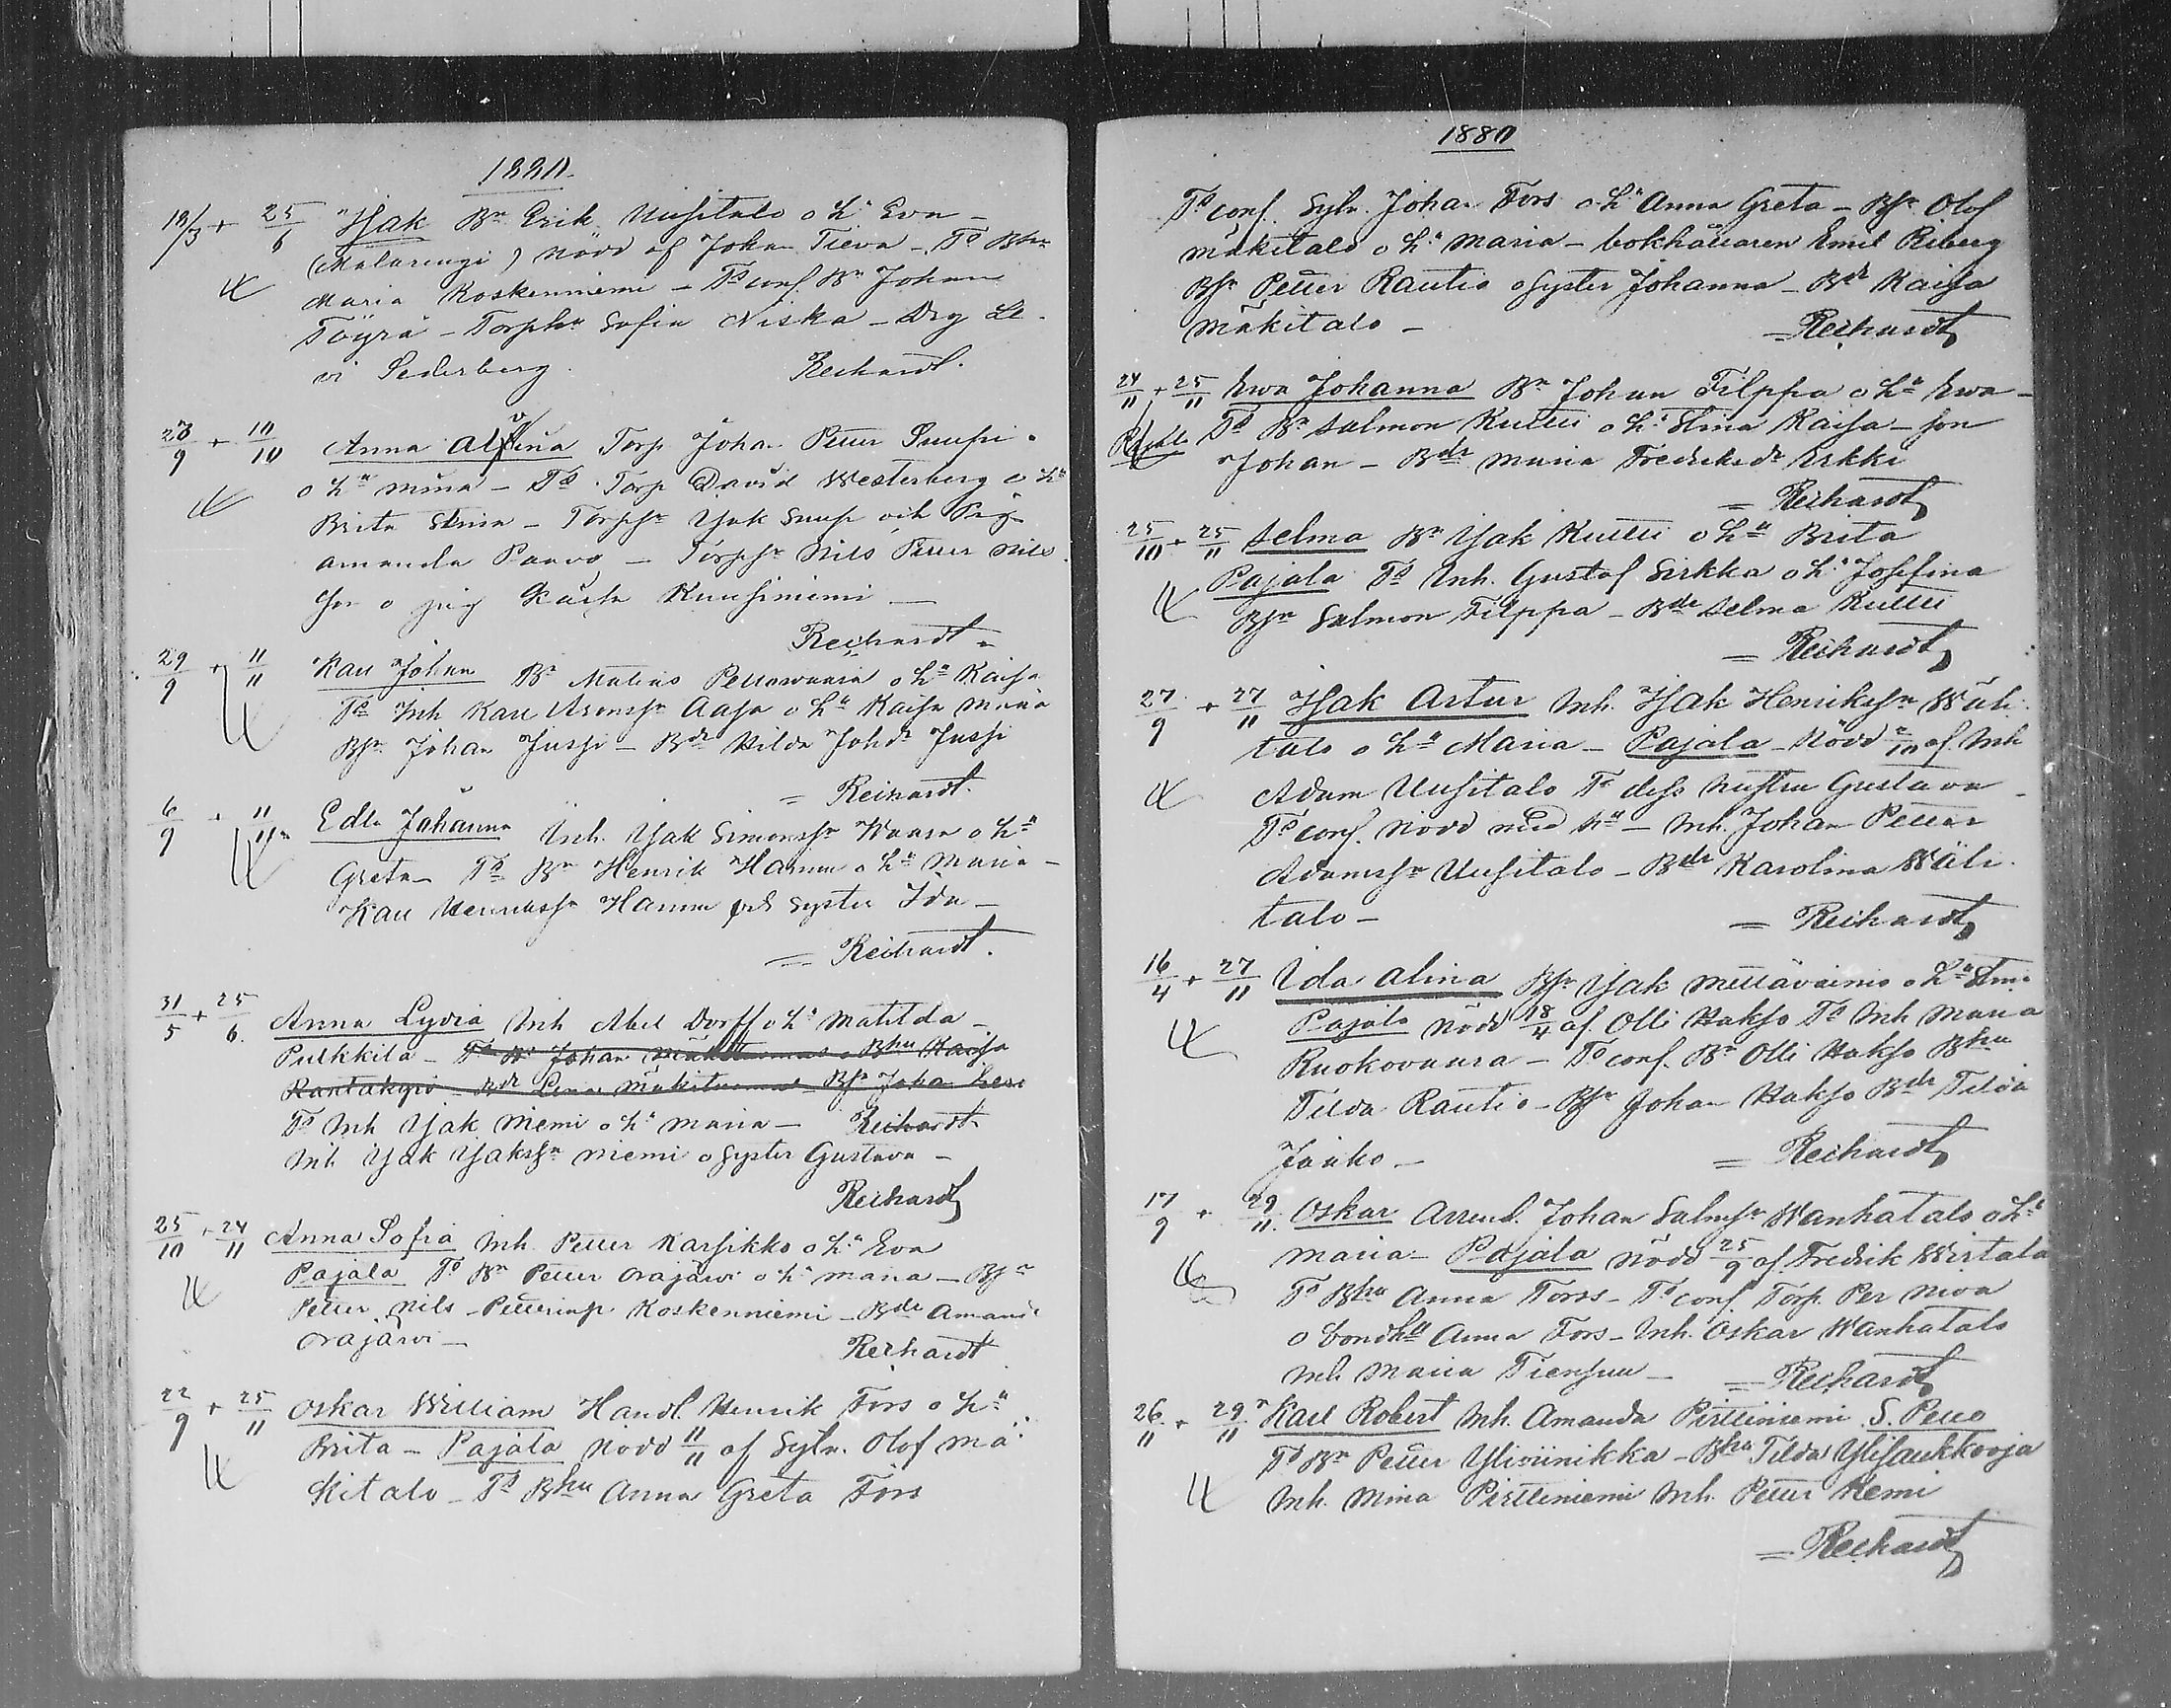 1880
18/3 + 25/6 Isak Bn Erik Uusitalo o hu Eva –
(Matarengi) nödd af Johan Tieva – Ts Bhu
Maria Koskenniemi – Ts conf. Bn Johan
Töyrä – Torphu Sofia Niska – Drg Le
vi Sederberg. Rechardt.
28/9 + 10/10 Anna Alvina Torp Johan Petter
o hu Mina – Ts Torp David Westerberg o hu
Brita Stina – Torpsn Isak och Pig
Amanda Paavo – Torpsn Nils Petter Nils
son o pig Kaisa Kuusiniemi –
Reichardt
29/9 + 11/11 Karl Johan Bn Matias o hu Kaisa
Ts Inh Karl Aasa o hu Kaisa Maria
Bsn Johan Jussi – Bdr Hilda Johdr Jussi
= Reichardt.
6/9 + 11/11 Edla Johanna Inh. Isak Simonssn Waara o hu
Greta – Ts Bn Henrik Hamm o hu Maria –
Karl Henrikssn Hamm och Syster Ida –
= Reichardt.
31/5 + 25/6. Anna Lydia Inh Abel Dorff o hu Matilda –
Pulkkila – Ts Bn Johan Bhu Kaisa
Rantakyrö – Bdr Lena Bsn Johan
Ts Inh Isak Niemi o hu Maria – Reichardt
Inh Isak Isakssn Niemi o Syster Gustava –
Reichardt
25/10 + 24/11 Anna Sofia Inh. Petter Karsikko o hu Eva
Pajala Ts Bn Petter Orajärvi o hu Maria – Bsn
Petter Nils Koskenniemi – Bdr Amanda
Orajärvi – Reichardt
22/9 + 25/11 Oskar William Handl. Henrik Fors o hu
Brita – Pajala nödd 11/11 af Sytn. Olof Mä
kitalo – Ts Bhu Anna Greta Fors
1880
Ts conf. Sytn. Johan Fors o hu Anna Greta – Bsn Olof
Mäkitalo o hu Maria – bokhållaren Emil Reberg
Bsn Petter Rautio o Syster Johanna – Bdr Kaisa
Mäkitalo – – Reichardt
24/11 + 25/11 Ewa Johanna Bn Johan Filppa o hu Ewa –
Ts Bn Salmon Kuttu o hu Stina Kaisa – son
Johan – Bdr Maria Fredriksdr Erkki
= Reichardt
25/10 + 25/11 Selma Bn Isak Kuttu o hu Brita
Pajala Ts Inh. Gustaf Sirkka o hu Josefina
Bsn Salmon Filppa – Bdr Selma Kuttu
= Reichardt
27/9 + 27/11 Isak Artur Inh. Isak Henrikssn Wäli
talo o hu Maria – Pajala – nödd 2/10 af Inh
Adam Uusitalo Ts dess hustru Gustava –
Ts conf. nödd med hu – Inh. Johan Petter
Adamssn Uusitalo – Bdr Karolina Wäli
talo – = Reichardt
16/4 + 27/11 Ida Alina Bsn Isak Mettäväinio o hu Stina
Pajala nödd 18/4 af Olli Hakso Ts Inh Maria
Ruokovaara – Ts conf. Bn Olli Hakso Bhu
Tilda Rautio – Bsn Johan Hakso Bdr Tilda
Jaako – = Reichardt
17/9 + 29/11 Oskar Arrend. Johan Salmsn Wanhatalo o hu
Maria – Pajala nödd 25/9 af Fredrik Wirtala
Ts Bhu Anna Forss – Ts conf Torp. Per Niva
o bondhu Anna Fors – Inh. Oskar Wanhatalo
Inh Maria Tiensuu – = Reichardt
26/11 + 29/11 Karl Robert Inh. Amanda Pirttiniemi S. Pello
Ts Bn Petter Ylivinikka – Bhu Tilda Ylijaukkooja
Inh. Mina Pirttiniemi Inh. Petter Kemi
= Reichardt